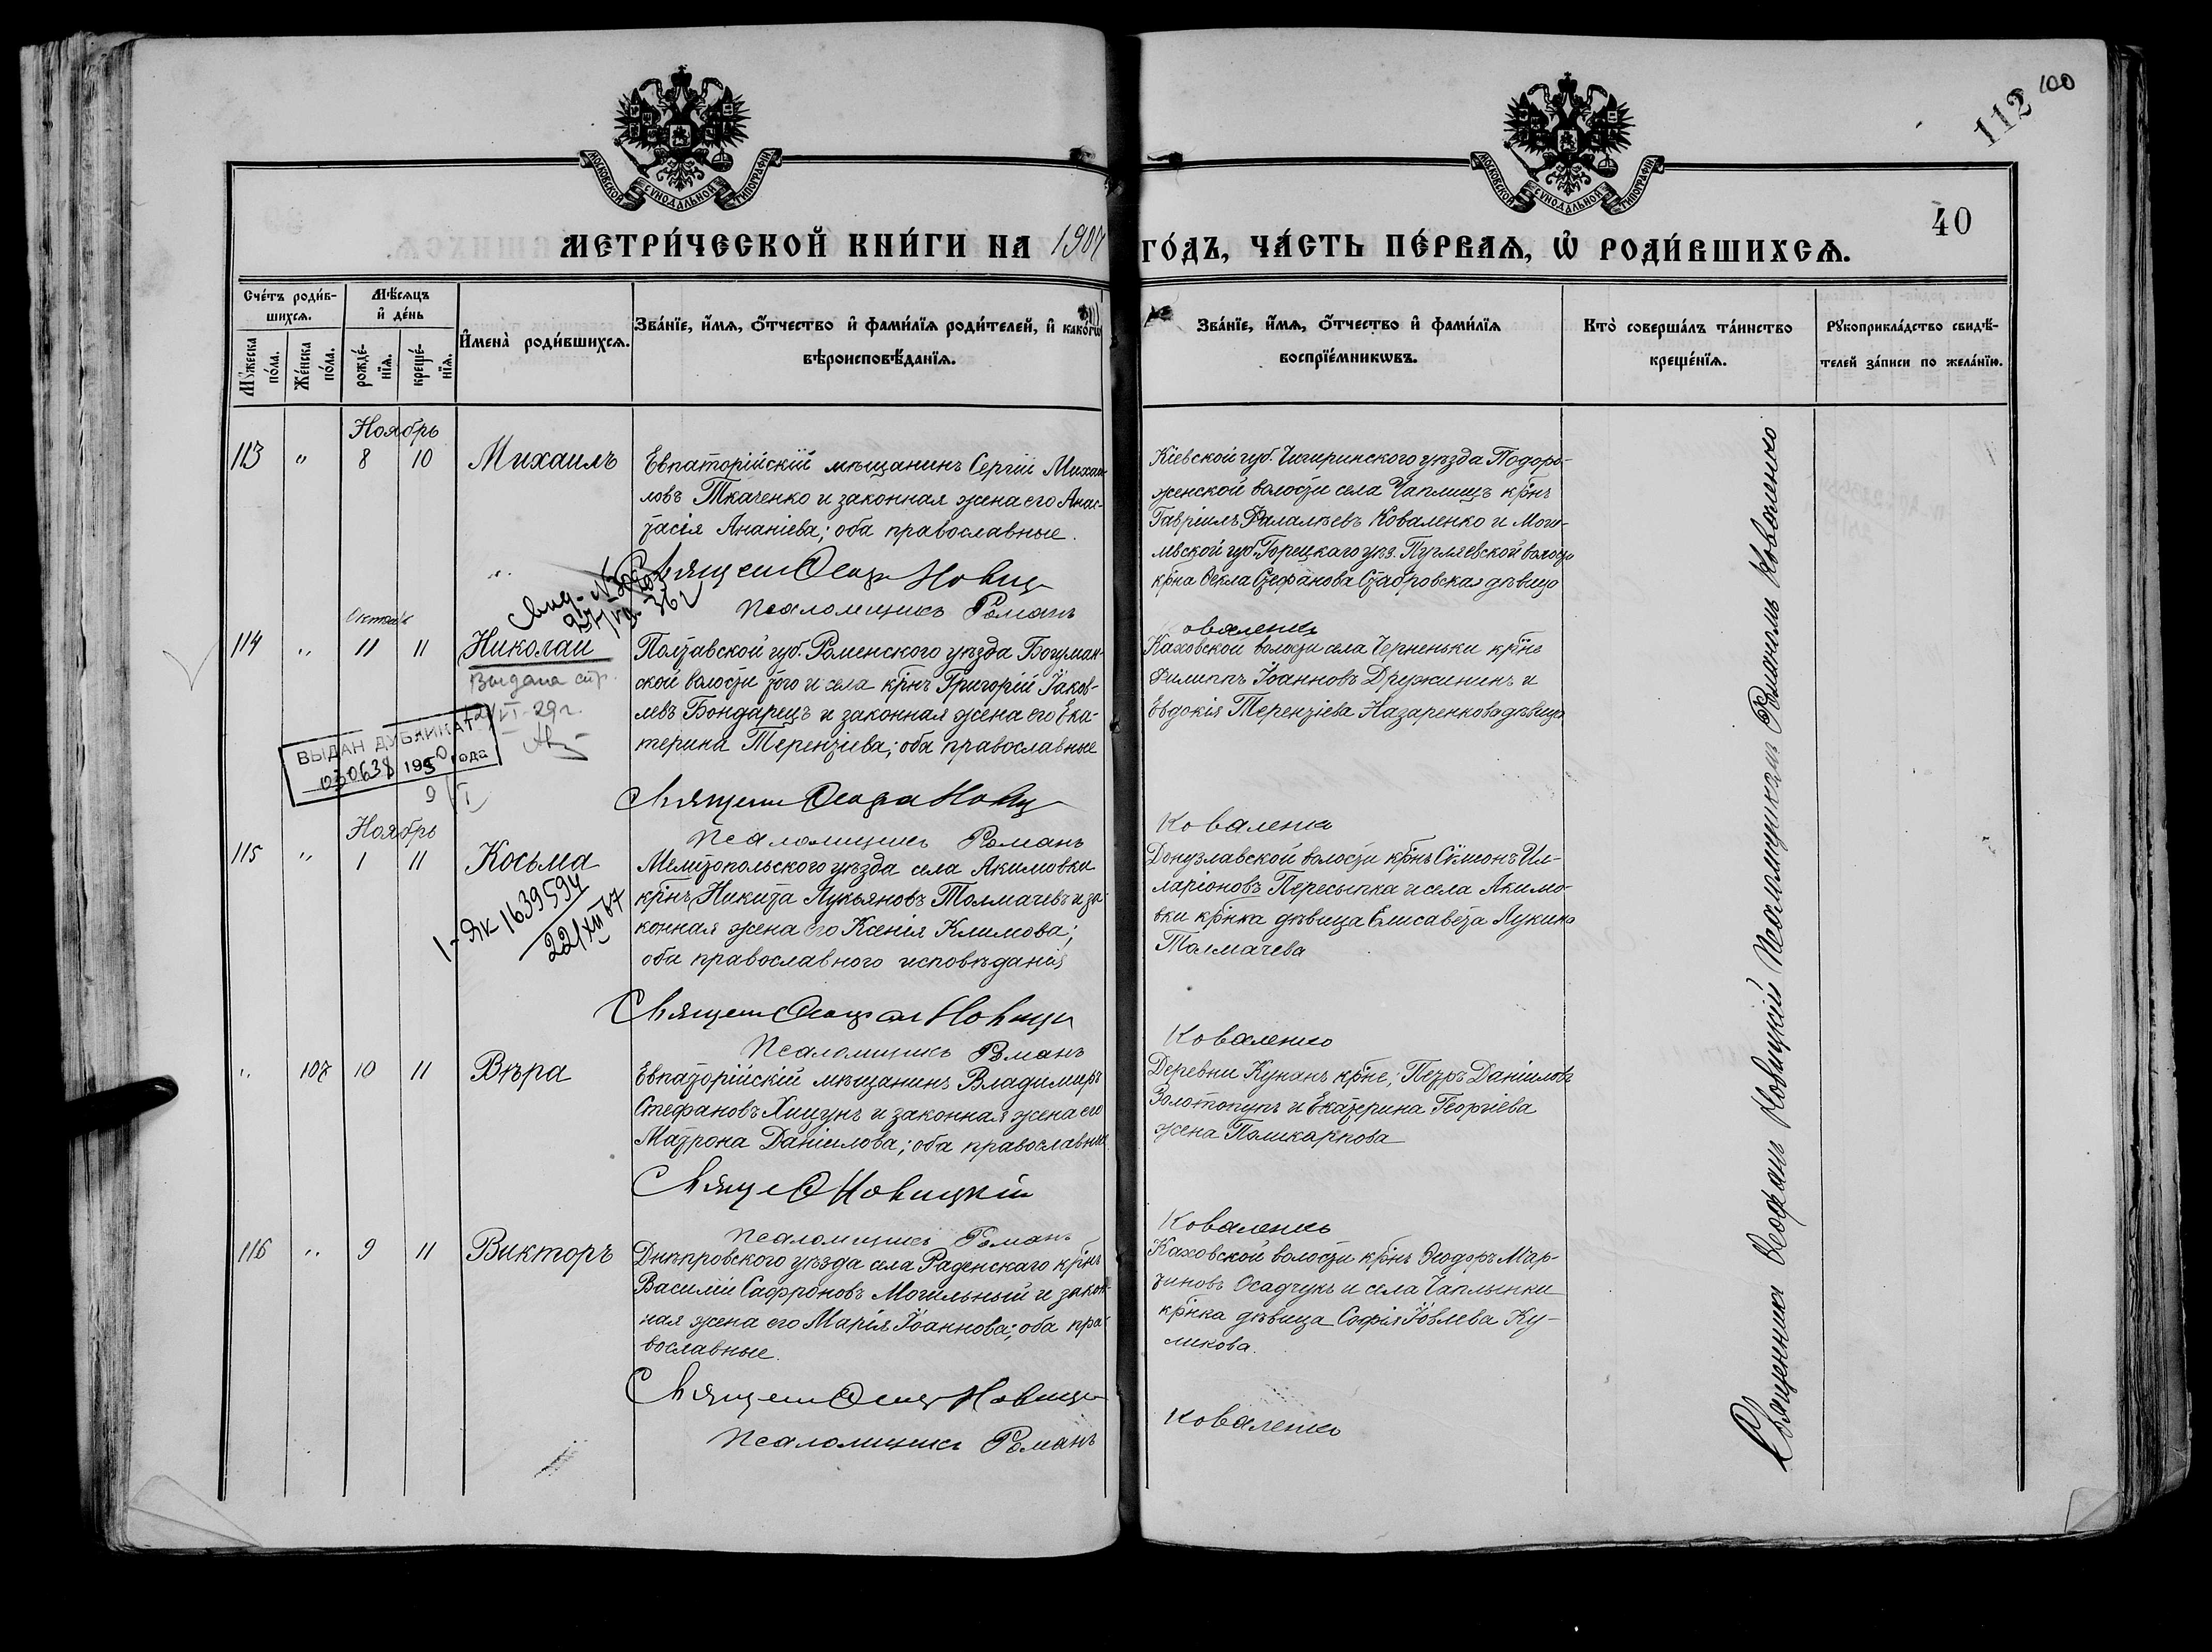 100
112
МОСКОВСКОЙ СѴНОДАЛЬНОЙ ТИПОГРАФІИ
МОСКОВСКОЙ СѴНОДАЛЬНОЙ ТИПОГРАФІИ
40
МЕТРИ́ЧЕСКОЙ КНИ́ГИ НА 1907
ГО́ДЪ, ЧА́СТЬ ПЕ́РВАѦ, Ѡ РОДИ́ВШИХСѦ.
Сче́тъ роди́в-
шихсѧ.
Мꙋ́жеска по́ла.
Же́нска по́ла.
Мѣ́сѧцъ и де́нь
рожде́-нїѧ.
креще́-нїѧ.
Имена̀ роди́вшихсѧ.
Зва́нїе, и́мѧ, ѻ́тчество и фами́лїѧ роди́телей, и како́гѡ
вѣроисповѣ́данїѧ.
Зва́нїе, и́мѧ, ѻ́тчество и фами́лїѧ
воспрїе́мникѡвъ.
Кто̀ соверша́лъ та́инство
креще́нїѧ.
Рꙋкоприкла́дство свидѣ́-
телей за́писи по жела́нїю.
Ноябрь
113 " 8 10 Михаилъ
Евпаторійскій мѣщанинъ Сергій Михаи-
ловъ Ткаченко и законная жена его Анас-
тасія Ананіева; оба православные.
Священ Новиц
Псаломщикъ Романъ
Кіевской губ. Чигиринского уѣзда Подоро-
женской волости села Чаплищъ кр͞нъ
Гавріилъ Фалалѣевъ Коваленко и Моги-
левской губ. Горецкаго уѣз. Пугляевской волости
кр͞нка Ѳекла Стефанова Стабровская дѣвица
оваленко
Свид. №
Октября
114 " 11 11 Николай
Выдана
VI-29 г.
ВЫДАН ДУБЛИКАТ
030638 1950 года
9/I
Полтавской губ. Роменского уѣзда Боцман-
ской волости того и села кр͞нъ Григорій Іаков-
левъ Бондарецъ и законная жена его Ека-
терина Терентіева; оба православные
Священ Новиц
Псаломщикъ Романъ
Каховской волости села Черненьки кр͞не
Филиппъ Іоанновъ Дружининъ и
Евдокія Терентіева Назаренкова дѣвица
Коваленко
Ноябрь
115 " 1 11 Косьма
1-ЯК 1639594
22/XII 87
Мелитопольского уѣзда села Акимовки
кр͞нъ Никита Лукьяновъ Толмачевъ и за-
конная жена его Ксенія Климова;
оба православного исповѣданія
Священ Новицк
Псаломщикъ Романъ
Донузлавской волости кр͞нъ Сѵмеонъ Ил-
ларіоновъ Пересыпка и села Акимо-
вки кр͞нка дѣвица Елисавета Лукина
Толмачева
Коваленко
" 107 10 11 Вѣра
Евпаторійскій мѣщанинъ Владимиръ
Стефановъ Хицунъ и законная жена его
Матрона Даніилова; оба православные
Свящ Ѳ Новицкій
Псаломщикъ Романъ
Деревни Кунанъ кр͞не; Петръ Данииловъ
Золотопупъ и Екатерина Георгіева
жена Поликарпова
Коваленко
116 " 9 11 Викторъ
Днѣпровского уѣзда села Раденскаго кр͞нъ
Василій Сафроновъ Могильный и закон-
ная жена его Марія Іоаннова; оба пра-
вославные.
Священ Новицк
Псаломщикъ Романъ
Каховской волости кр͞нъ Ѳеодоръ Мар-
тиновъ Осадчукъ и села Чаплынки
кр͞нка дѣвица Софія Іовлева Ку-
ликова.
Коваленко
Священникъ Ѳеофанъ Новицкій Псаломщикомъ Романомъ Коваленко